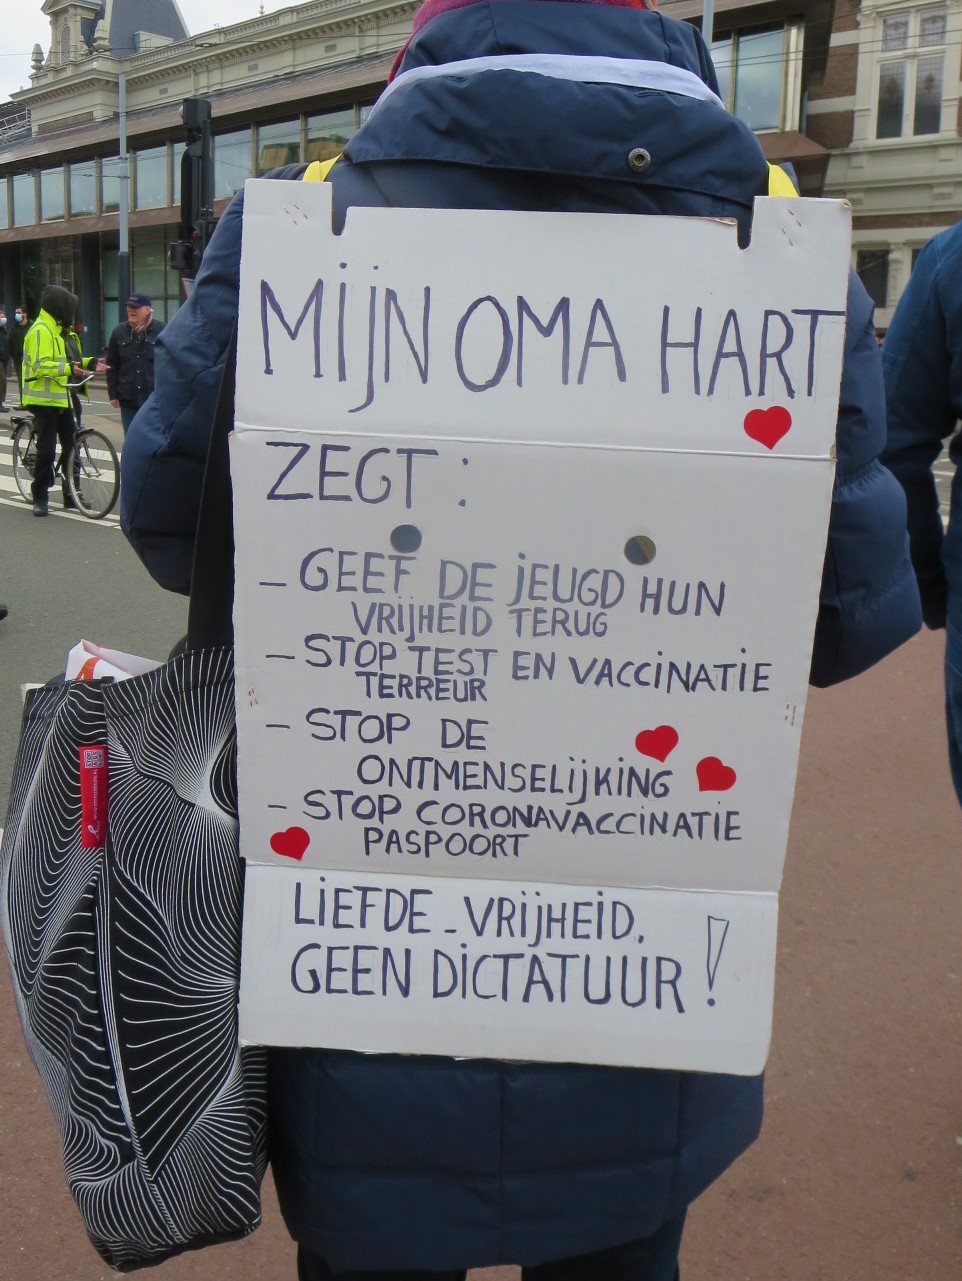 MIJN OMA HART
ZEGT:
- GEEF DE JEUGD HUN
VRIJHEID TERUG
- STOP TEST EN VACCINATIE
TERREUR
- STOP DE
ONTMENSELIJKING
- STOP CORONAVACCINATIE
PASPOORT
LIEFDE - VRIJHEID,
GEEN DICTATUUR!